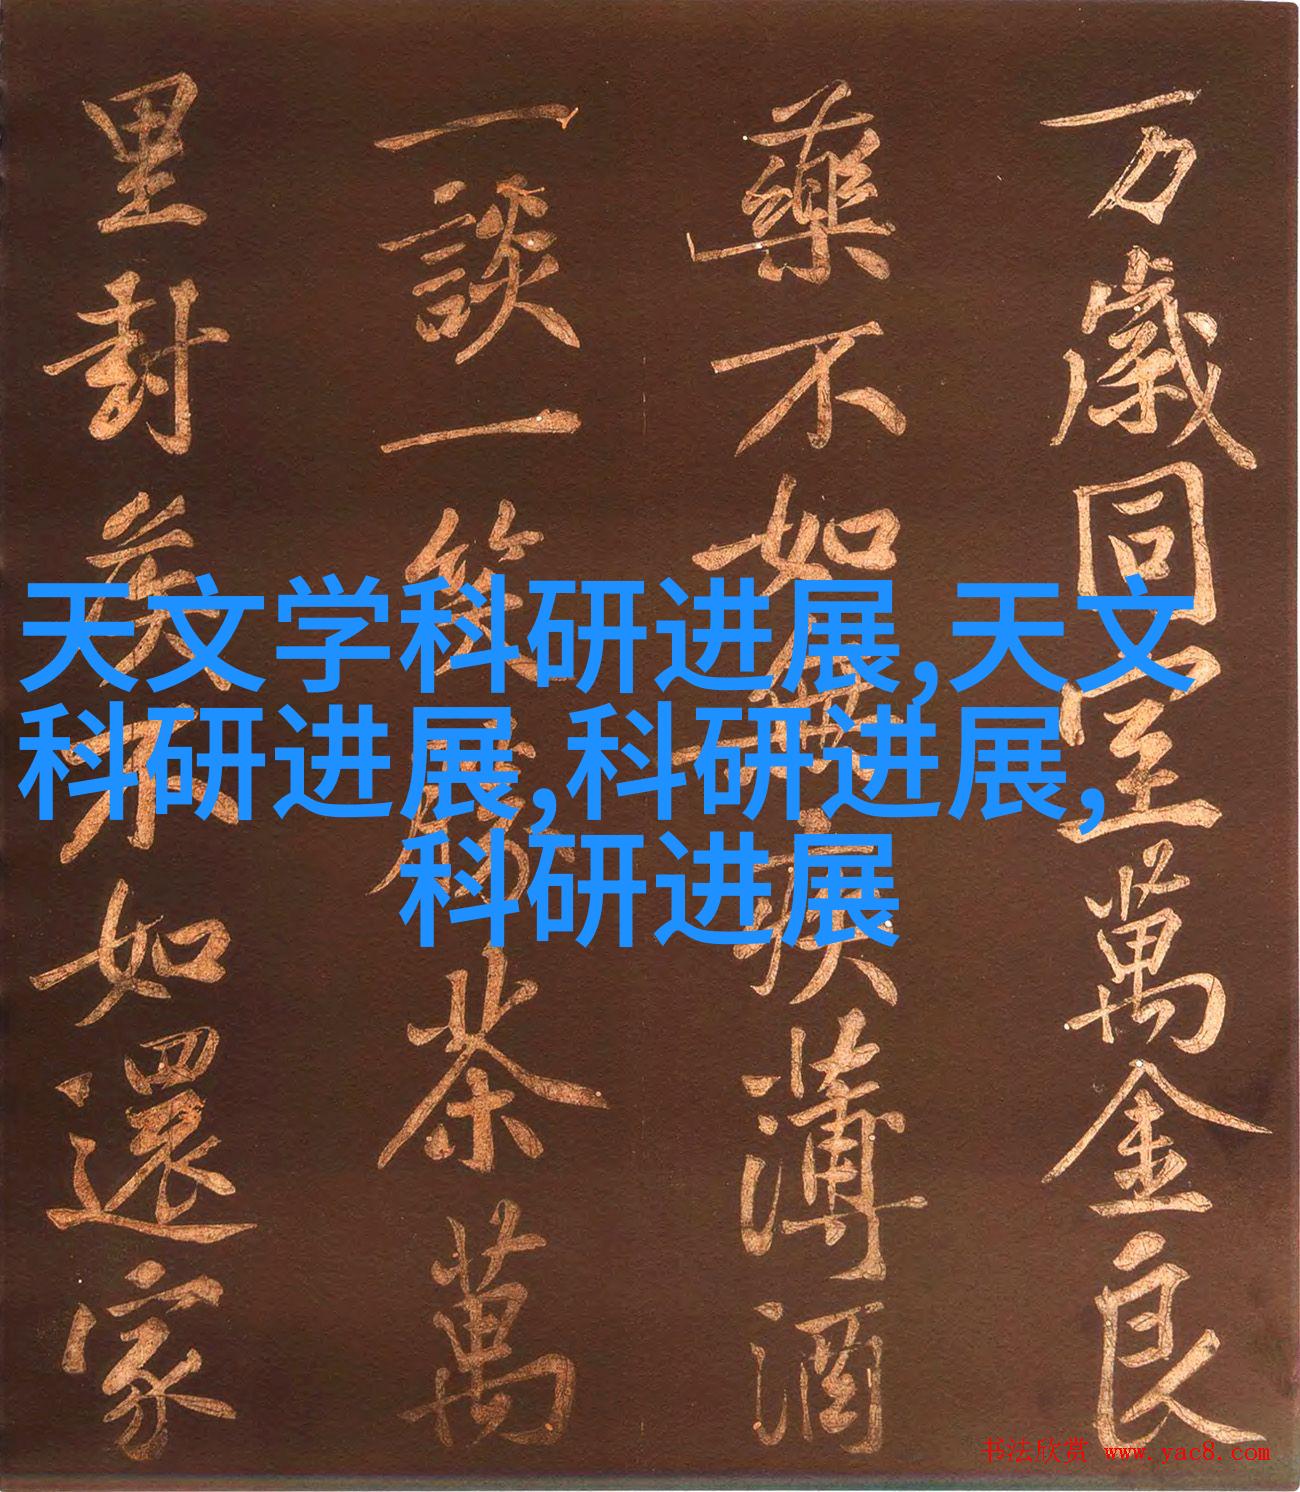 万歲同室萬金良
藥不如無疾薄酒
一談一笑勝茶萬
里封矦不如還家
天文学科研进展,天文
科研进展,科研进展,
科研进展
书法欣赏 www.yac8.com